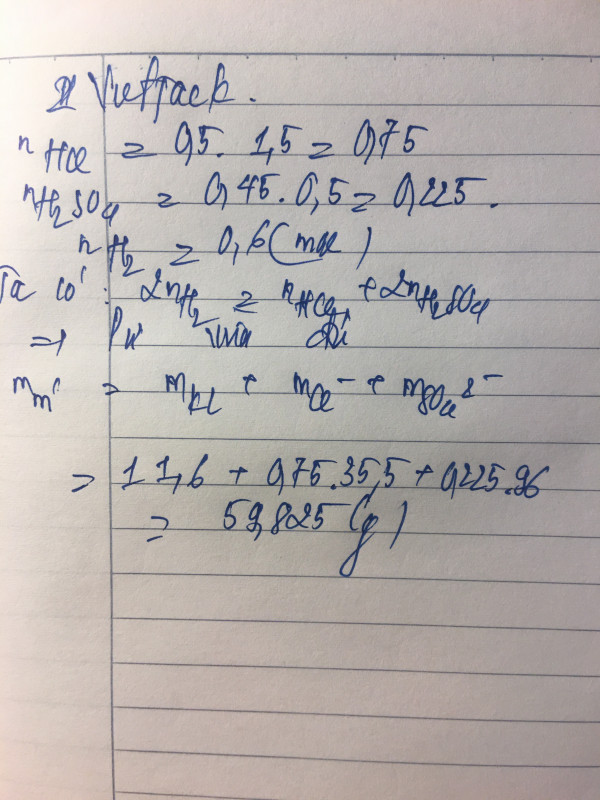 Vietjack.
nHCl = 0,5. 1,5 = 0,75
nH2SO4 = 0,45. 0,5 = 0,225.
nH2 = 0,6 (mol)
Ta có: 2nH2 = nHCl + 2nH2SO4
=> Pư vừa đủ
mm' = mkl + mCl- + mSO4 2-
= 11,6 + 0,75.35,5 + 0,225.96
= 59,825 (g)